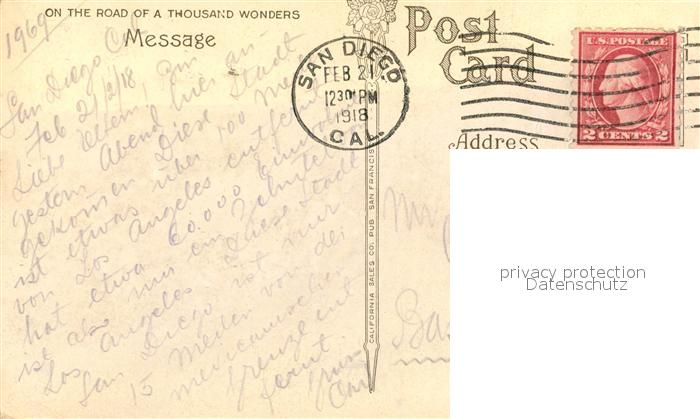 ON THE ROAD OF A THOUSAND WONDERS
1969
Message
San Diego Cal
Feb 21/2/18
Liebe Eltern, bin
gestern Abend hier an-
gekomen Diese Stadt
ist etwas über 100 Meilen
von Los Angeles entfernt
hat etwa 60.000 Einwohner
ist also nur ein
Los Angeles Diese Stadt
San Diego ist nur
15 Meilen von der
mexicanischen
Grenze ent
fernt
Post
Card
SAN DIEGO
FEB 21
1230 PM
1918
CAL.
U.S. POSTAGE
2 CENTS 2
Address
CALIFORNIA SALES CO. PUB. SAN FRANCISCO
Mr
Bas
privacy protection
Datenschutz